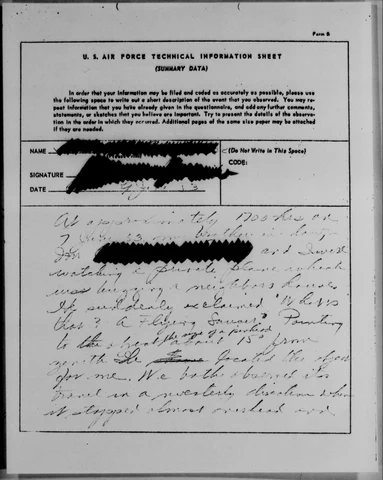 Form B
U. S. AIR FORCE TECHNICAL INFORMATION SHEET
(SUMMARY DATA)
In order that your information may be filed and coded as accurately as possible, please use
the following space to write out a short description of the event that you observed. You may re-
peat information that you have already given in the questionnaire, and add any further comments,
statements, or sketches that you believe are important. Try to present the details of the observa-
tion in the order in which they occurred. Additional pages of the same size paper may be attached
if they are needed.
NAME
(Do Not Write in This Space)
CODE:
SIGNATURE
DATE
At approximately 1700 hrs on
7
and I were
watching a private plane which
was buzzing a neighbors house
suddenly exclaimed "What's
that? A Flying Saucer" Pointing
the size of a pinhead
to the about 15° from
zenith. She located the object
for me. We both observed it
travel in a westerly direction when
it stopped almost overhead and